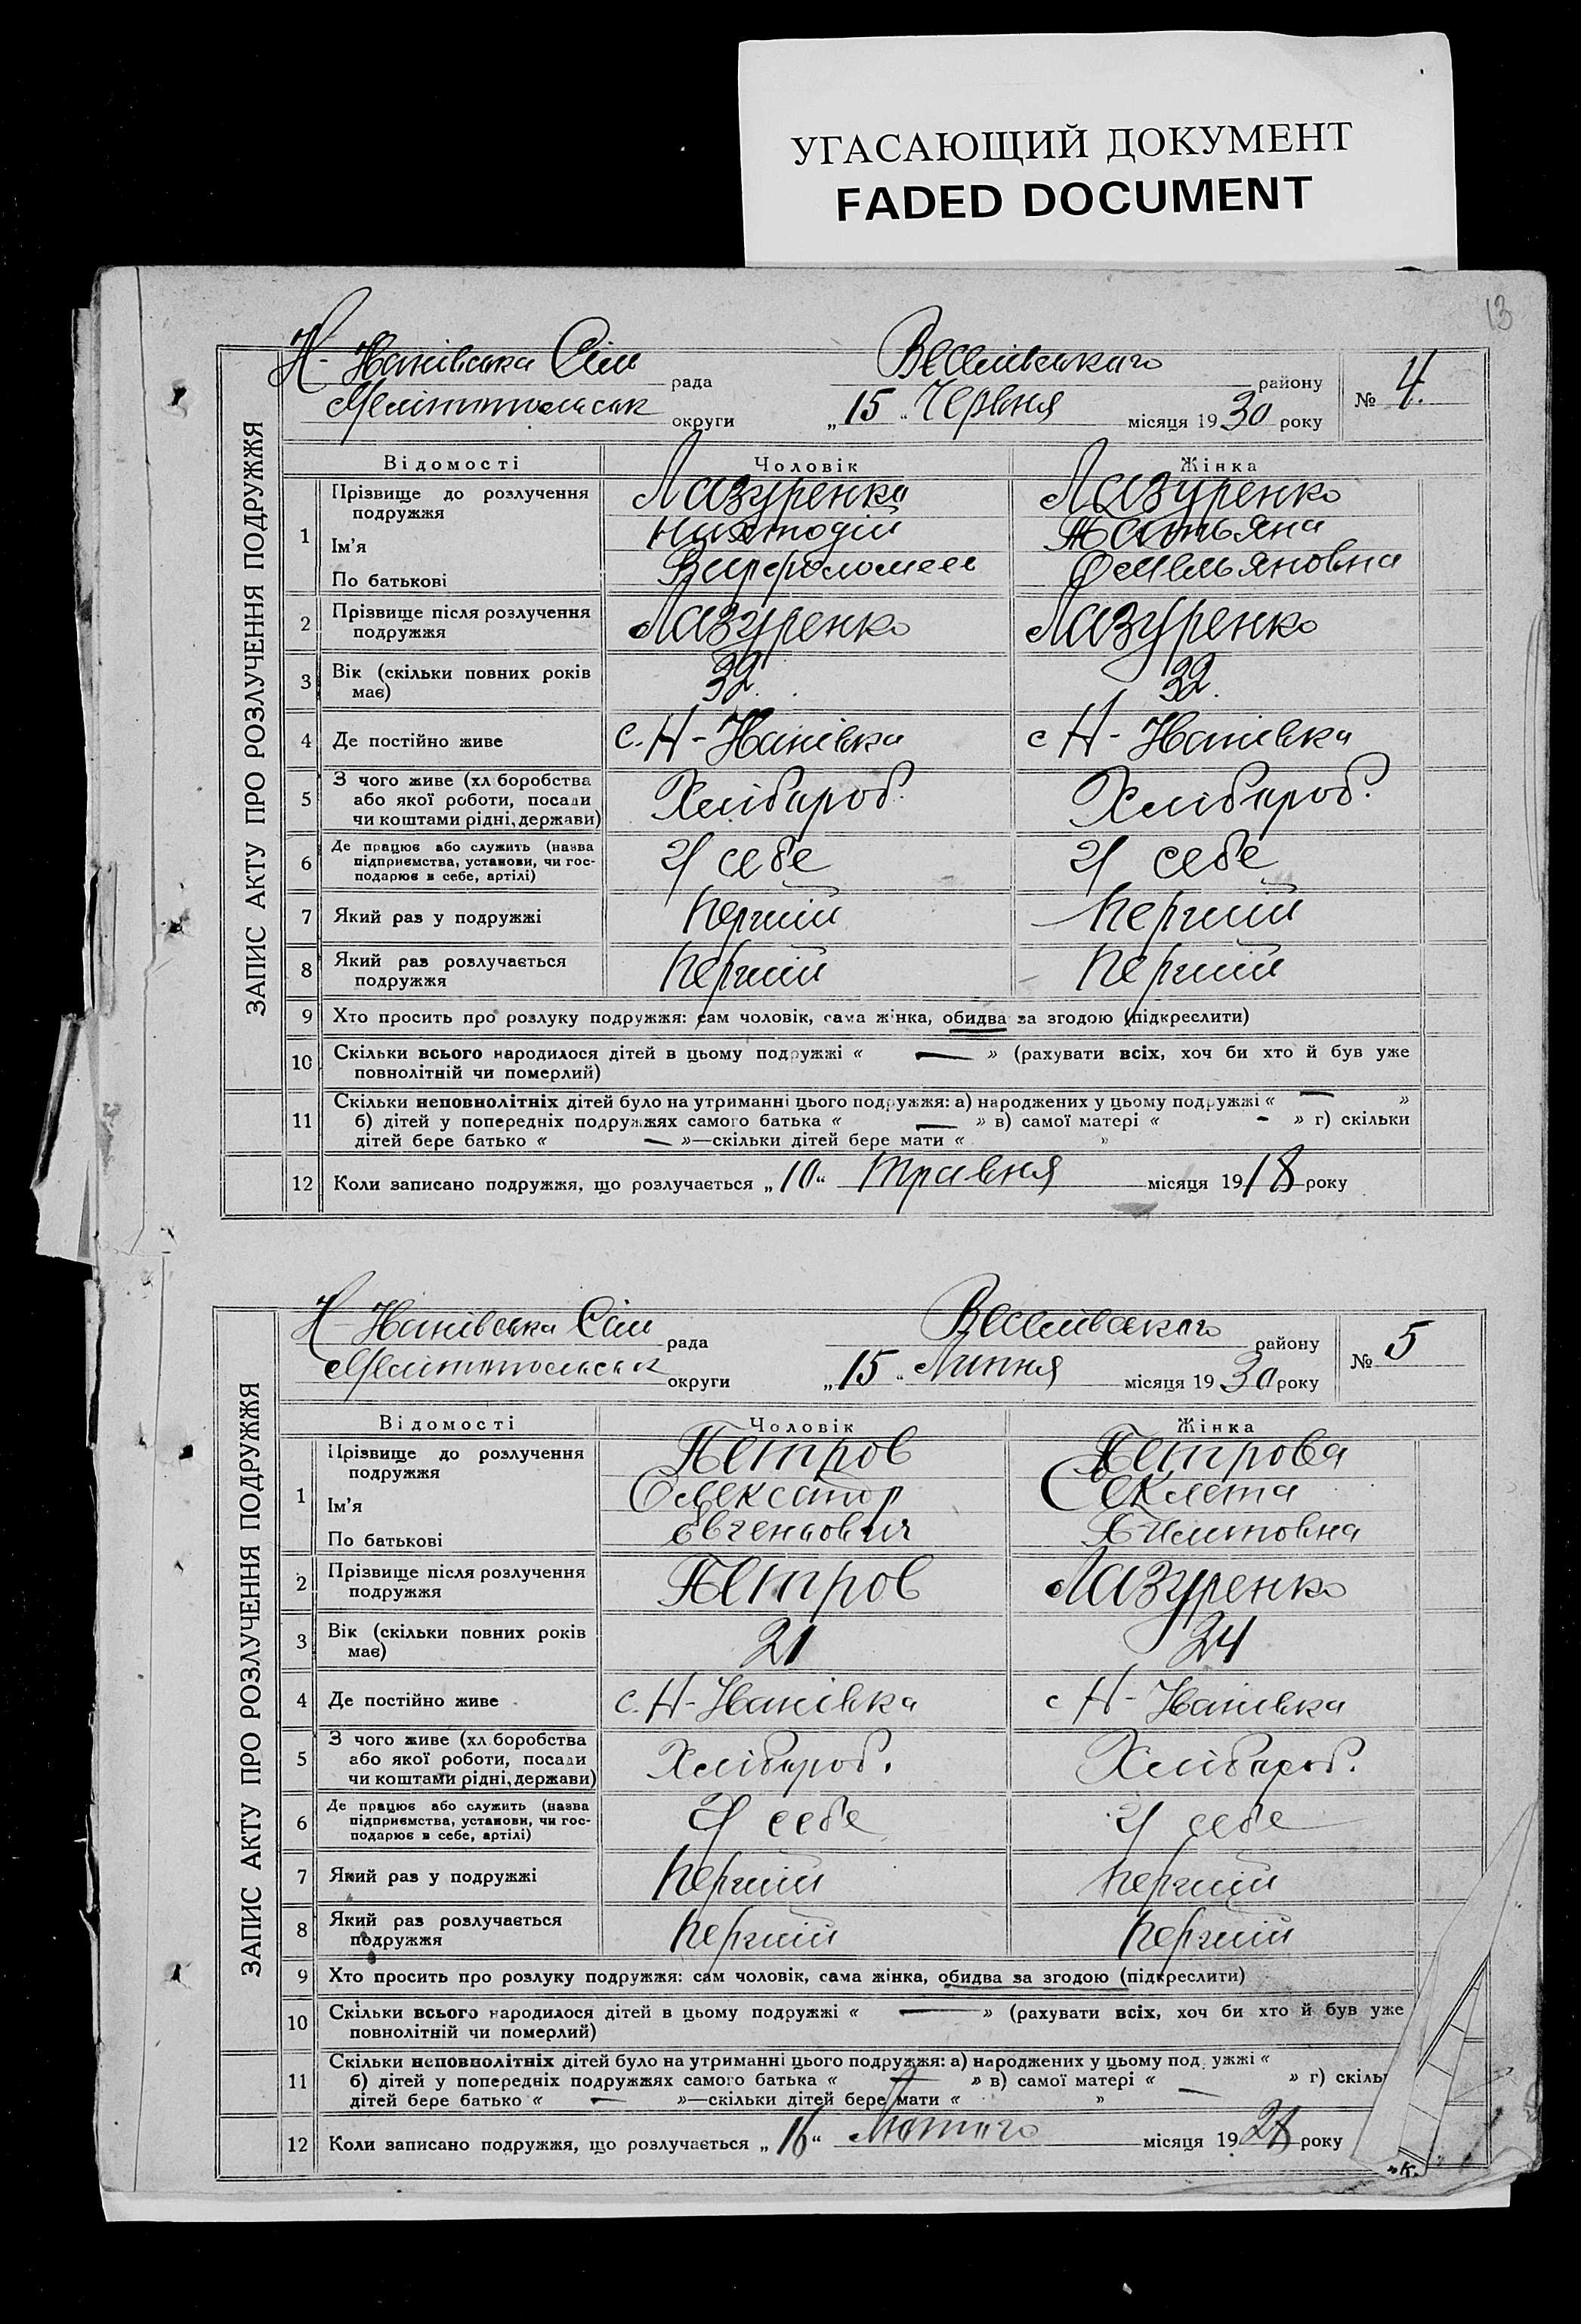 УГАСАЮЩИЙ ДОКУМЕНТ
FADED DOCUMENT
13
ЗАПИС АКТУ ПРО РОЗЛУЧЕННЯ ПОДРУЖЖЯ
рада
району
№ 4.
округи
„15“ Червня місяця 1930 року
Відомості Чоловік Жінка
1 Прізвище до розлучення подружжя Лазуренко Лазуренко
Ім'я Татьяна
По батькові Омельяновна
2 Прізвище після розлучення подружжя Лазуренко Лазуренко
3 Вік (скільки повних років має) 32. 32.
4 Де постійно живе с. Н-Іванівка с Н-Іванівка
5 З чого живе (хліборобства або якої роботи, посади чи коштами рідні, держави) Хлібороб. Хлібороб.
6 Де працює або служить (назва підприємства, установи, чи господарює в себе, артілі) У себе У себе
7 Який раз у подружжі Перший Перший
8 Який раз розлучається подружжя Перший Перший
9 Хто просить про розлуку подружжя: сам чоловік, сама жінка, обидва за згодою (підкреслити)
10 Скільки всього народилося дітей в цьому подружжі « — » (рахувати всіх, хоч би хто й був уже
повнолітній чи померлий)
11 Скільки неповнолітніх дітей було на утриманні цього подружжя: а) народжених у цьому подружжі « — »
б) дітей у попередніх подружжях самого батька « — » в) самої матері « - » г) скільки
дітей бере батько « — »—скільки дітей бере мати « »
12 Коли записано подружжя, що розлучається „10“ травня місяця 1918 року
ЗАПИС АКТУ ПРО РОЗЛУЧЕННЯ ПОДРУЖЖЯ
рада
району
№ 5
округи
„15“ Липня місяця 1930 року
Відомості Чоловік Жінка
1 Прізвище до розлучення подружжя Петров Петрова
Ім'я Олександр Секлета
По батькові Євгеньович
2 Прізвище після розлучення подружжя Петров Лазуренко
3 Вік (скільки повних років має) 21 24
4 Де постійно живе с. Н-Іванівка с Н-Іванівка
5 З чого живе (хліборобства або якої роботи, посади чи коштами рідні, держави) Хлібороб. Хлібороб.
6 Де працює або служить (назва підприємства, установи, чи господарює в себе, артілі) У себе У себе
7 Який раз у подружжі Перший Перший
8 Який раз розлучається подружжя Перший Перший
9 Хто просить про розлуку подружжя: сам чоловік, сама жінка, обидва за згодою (підкреслити)
10 Скільки всього народилося дітей в цьому подружжі « — » (рахувати всіх, хоч би хто й був уже
повнолітній чи померлий)
11 Скільки неповнолітніх дітей було на утриманні цього подружжя: а) народжених у цьому подружжі «
б) дітей у попередніх подружжях самого батька « — » в) самої матері « — » г) скіль
дітей бере батько « — »—скільки дітей бере мати « »
12 Коли записано подружжя, що розлучається „16“ Лютого місяця 1928 року